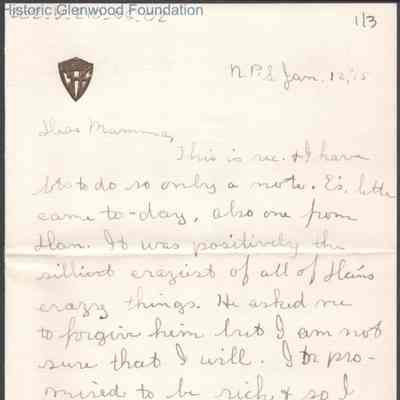 Historic Glenwood Foundation
1/3
N.P.S. Jan. 12, 15
Dear Mamma,
This is rec. & I have
lots to do so only a note. E's. letter
came to-day, also one from
Han. It was positively the
silliest craziest of all of Han's
crazy things. He asked me
to forgive him but I am not
sure that I will. I pro-
mised to be rich & so I